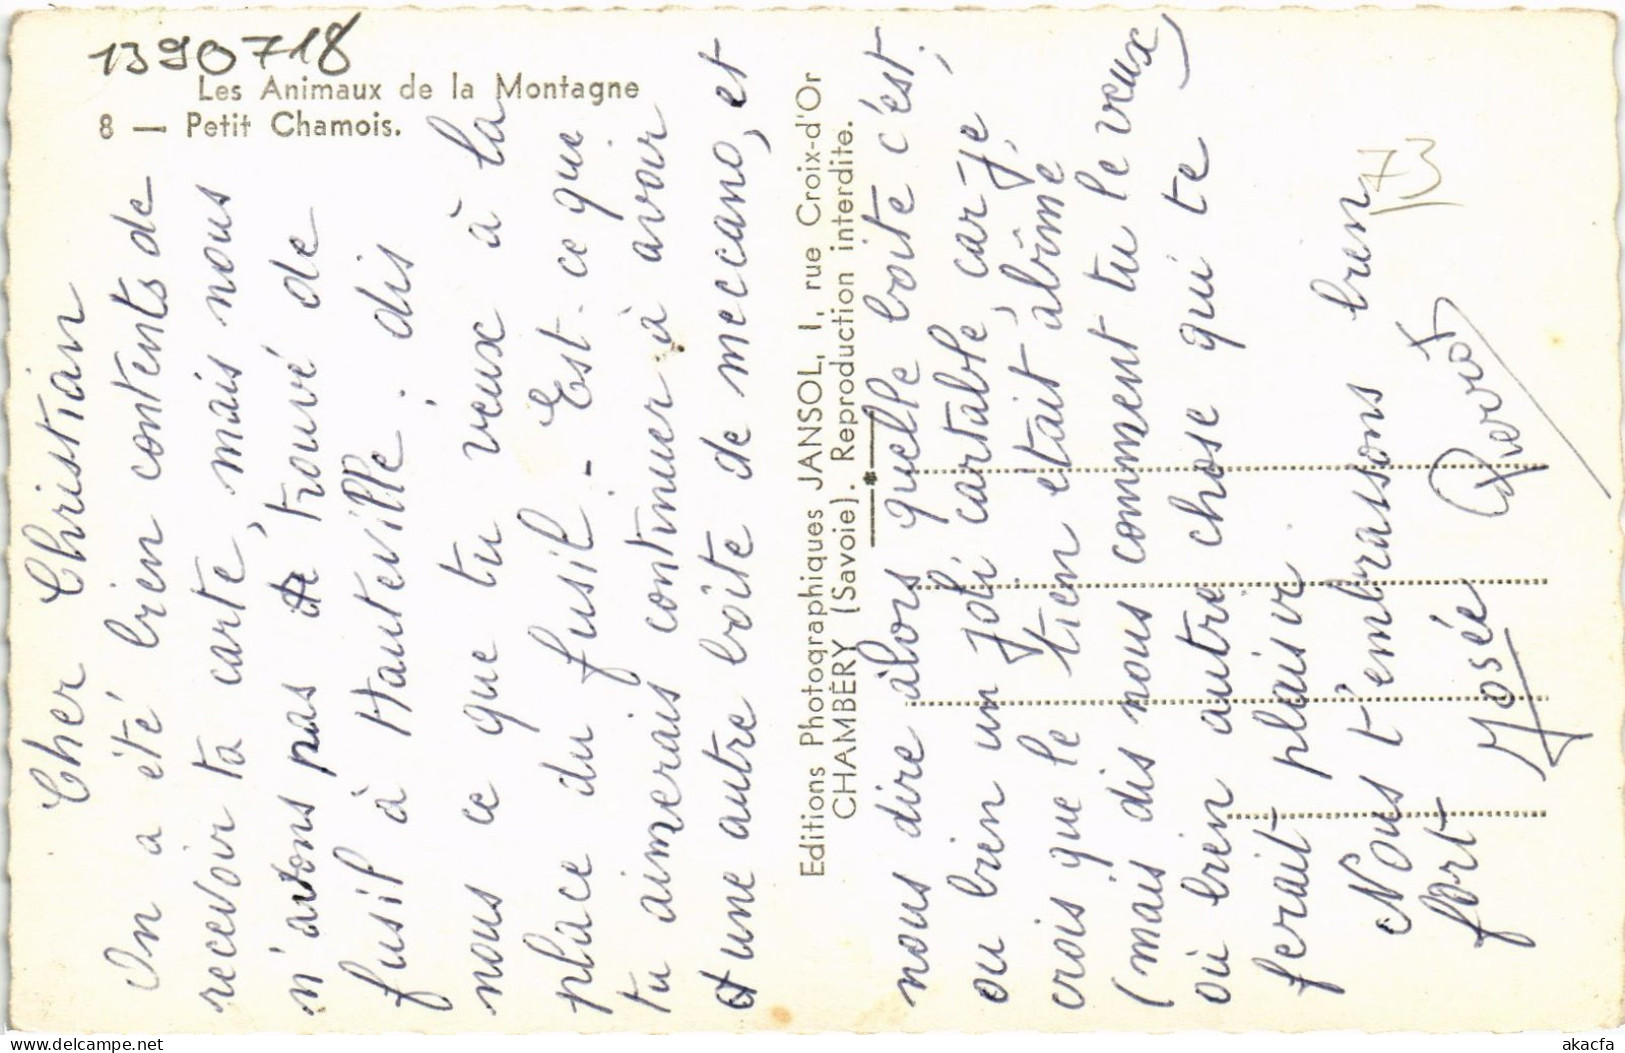 1390718
Les Animaux de la Montagne
8 — Petit Chamois.
Cher Christian
On a été bien contents de
recevoir ta carte, mais nous
n'avons pas trouvé de
fusil à Hauteville. dis
nous ce que tu veux à la
place du fusil. - Est-ce que
tu aimerais continuer à avoir
une autre boîte de meccano, et
Editions Photographiques JANSOL, 1, rue Croix-d'Or
CHAMBÉRY (Savoie). Reproduction interdite.
nous dire alors quelle boite c'est;
ou bien un joli cartable, car je
crois que le tien était abîmé
(mais dis nous comment tu le veux)
où bien autre chose qui te
ferait plaisir.
Nous t'embrassons bien
fort
Josée Pierrot
73
akacfa
delcampe.net